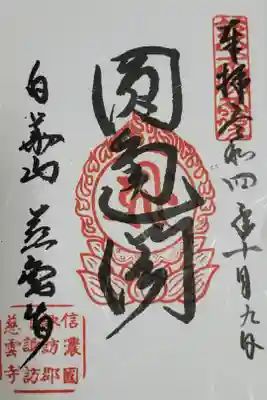 奉拝 令和四年十月九日
圓通閣
白華山 慈雲寺
信濃國
諏訪郡
下諏訪
慈雲寺